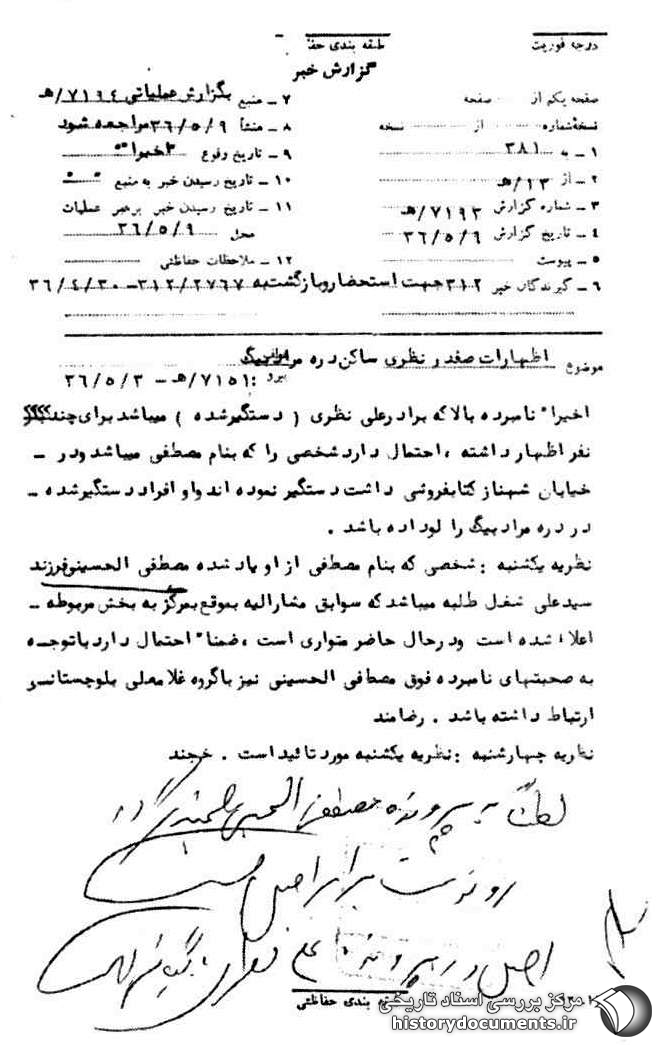 درجه فوریت
طبقه بندی حفا
گزارش خبر
صفحه یکم از ........ صفحه
نسخه شماره ........ از ........ نسخه
۱ – به ۳۸۱
۲ – از ۱۳/هـ
۳ – شماره گزارش ۷۱۹۳/هـ
۴ – تاریخ گزارش ۳۶/۵/۹
۵ – پیوست
۶ – گیرندگان خبر ۳۱۲ جهت استحضار و بازگشت به ۳۱۲/۲۷۶۷ – ۳۶/۴/۳۰
۷ – منبع بگزارش عملیاتی ۷۱۹۴/هـ
۸ – منشأ ۳۶/۵/۹ مراجعه شود
۹ – تاریخ وقوع اخیرا"
۱۰ – تاریخ رسیدن خبر به منبع " "
۱۱ – تاریخ رسیدن خبر برهبر عملیات
محل ۳۶/۵/۹
۱۲ – ملاحظات حفاظتی
موضوع اظهارات صفدر نظری ساکن دره مرادبیگ
پیرو : ۷۱۵۱/هـ – ۳۶/۵/۳
اخیرا" نامبرده بالا که برادر علی نظری ( دستگیر شده ) میباشد برای چند
نفر اظهار داشته ، احتمال دارد شخصی را که بنام مصطفی میباشد ودر –
خیابان شهناز کتابفروشی داشت دستگیر نموده اند واو افراد دستگیر شده –
در دره مرادبیگ را لو داده باشد .
نظریه یکشنبه : شخصی که بنام مصطفی از او یاد شده مصطفی الحسینی فرزند
سیدعلی شغل طلبه میباشد که سوابق مشارالیه بموقع بمرکز به بخش مربوطه –
اعلام شده است ودر حال حاضر متواری است ، ضمنا" احتمال دارد باتوجه
به صحبتهای نامبرده فوق مصطفی الحسینی نیز باگروه غلامعلی بلوچستانی
ارتباط داشته باشد . رضامند
نظریه چهارشنبه : نظریه یکشنبه مورد تائید است . خجند
لطفاً به پرونده مصطفی الحسینی
رونوشت برابر اصل است
اصل در پرونده علی نظری
بندی حفاظتی
مرکز بررسی اسناد تاریخی
historydocuments.ir